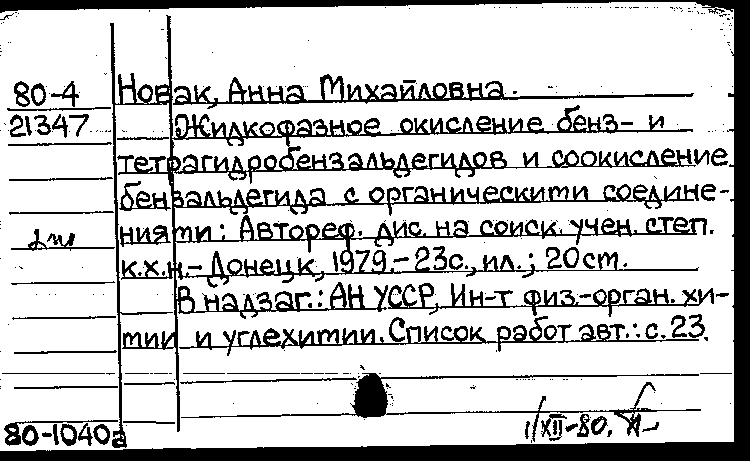 80-4 Новак, Анна Михайловна.
21347 Жидкофазное окисление бенз- и
тетрагидробензальдегидов и соокисление
бензальдегида с органическими соедине-
ниями: Автореф. дис. на соиск. учен. степ.
к.х.н.- Донецк, 1979.- 23с., ил.; 20см.
В надзаг.: АН УССР, Ин-т физ.-орган. хи-
мии и углехимии. Список работ авт.: с. 23.
80-1040а
1/XII-80.